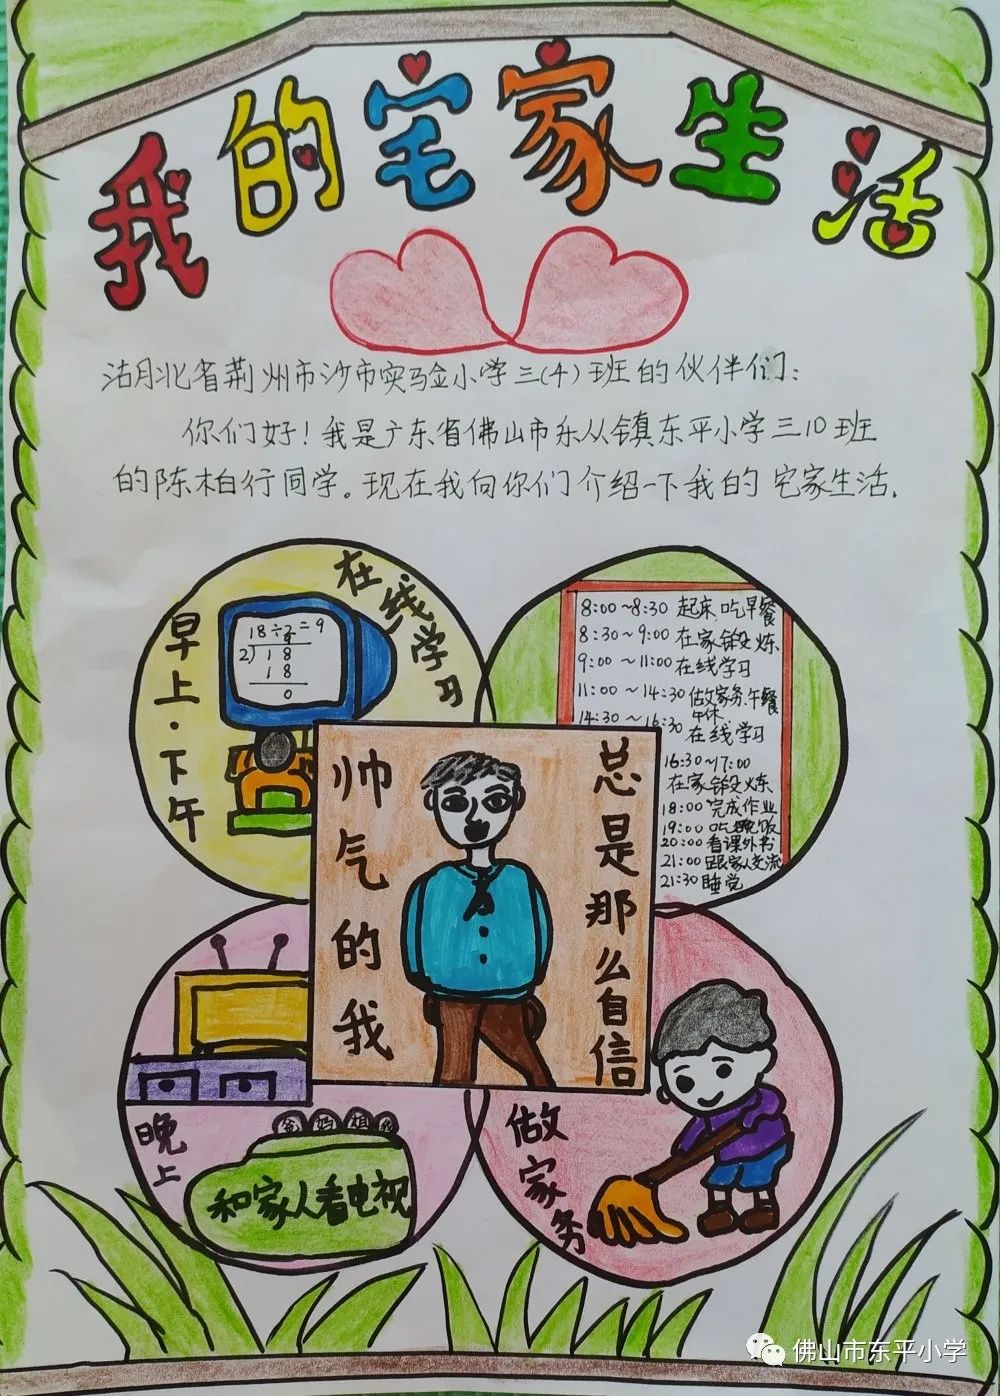 我的宅家生活
湖北省荆州市沙市实验小学三(4)班的伙伴们:
你们好!我是广东省佛山市乐从镇东平小学三10班
的陈柏行同学。现在我向你们介绍一下我的宅家生活.
早上·下午
在线学习
18÷2=9
9
2)18
18
0
8:00~8:30 起床,吃早餐
8:30~9:00 在家锻炼
9:00~11:00 在线学习
11:00~14:30 做家务.午餐
午休
14:30~16:30 在线学习
16:30~17:00
在家锻炼
18:00 完成作业
19:00 吃晚饭
20:00 看课外书
21:00 跟家人交流
21:30 睡觉
帅气的我
总是那么自信
晚上
爸妈姐
和家人看电视
做家务
佛山市东平小学